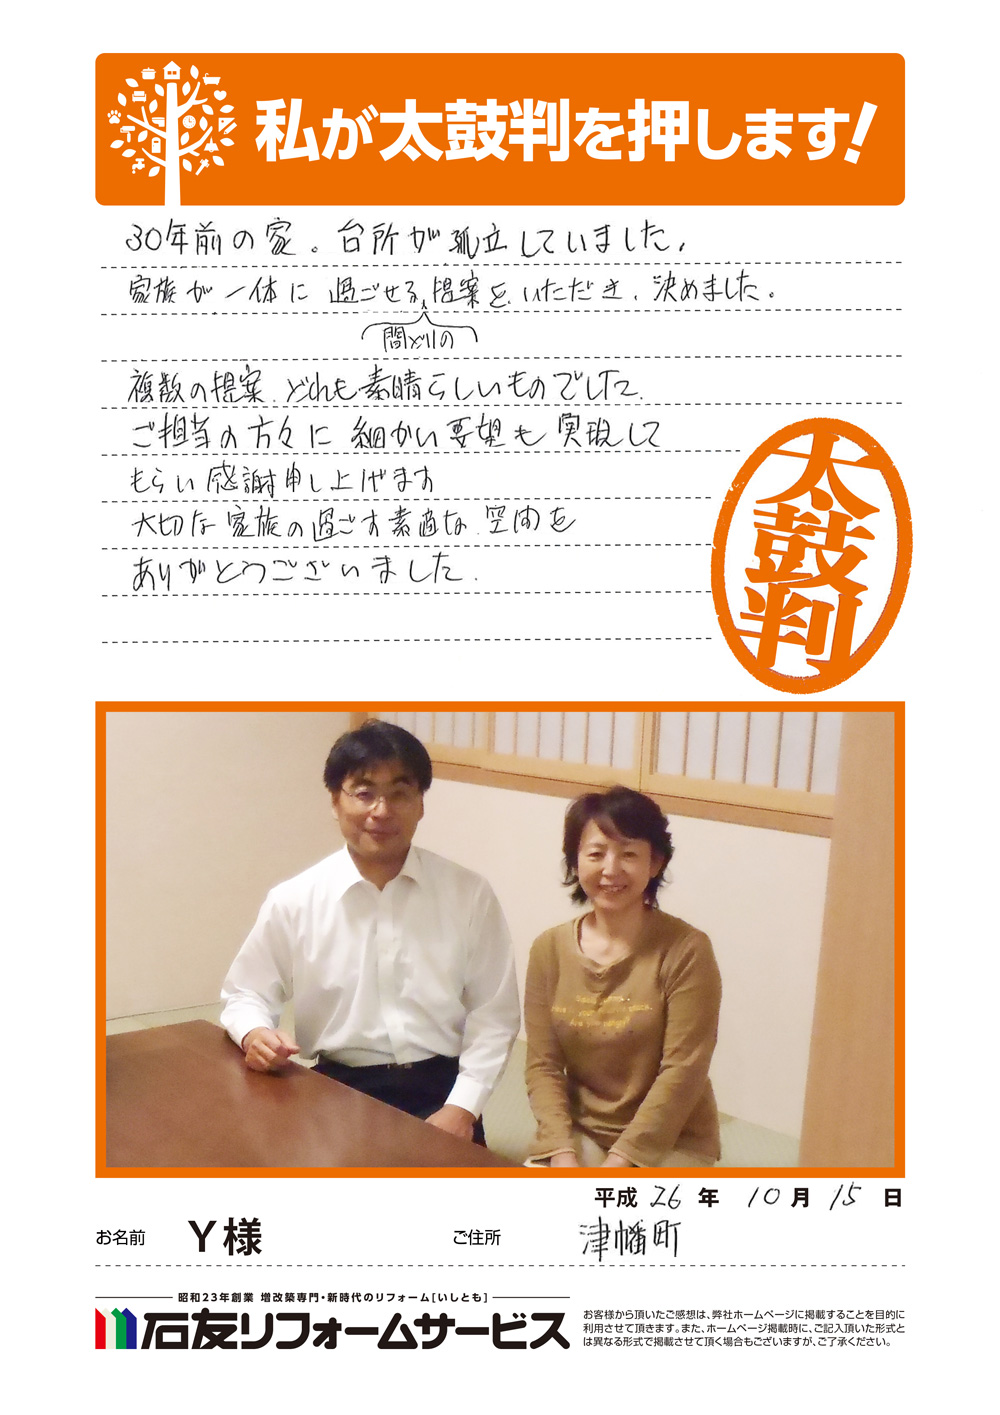 私が太鼓判を押します!
30年前の家。台所が孤立していました。
家族が一体に過ごせる提案をいただき、決めました。
間どりの
複数の提案、どれも素晴らしいものでした。
ご担当の方々に細かい要望も実現して
もらい感謝申し上げます
大切な家族の過ごす素適な空間を
ありがとうございました。
太鼓判
平成26年10月15日
お名前 Y様 ご住所 津幡町
昭和23年創業 増改築専門・新時代のリフォーム[いしとも]
石友リフォームサービス
お客様から頂いたご感想は、弊社ホームページに掲載することを目的に
利用させて頂きます。また、ホームページ掲載時に、ご記入頂いた形式と
は異なる形式で掲載させて頂く場合もございますが、ご了承ください。